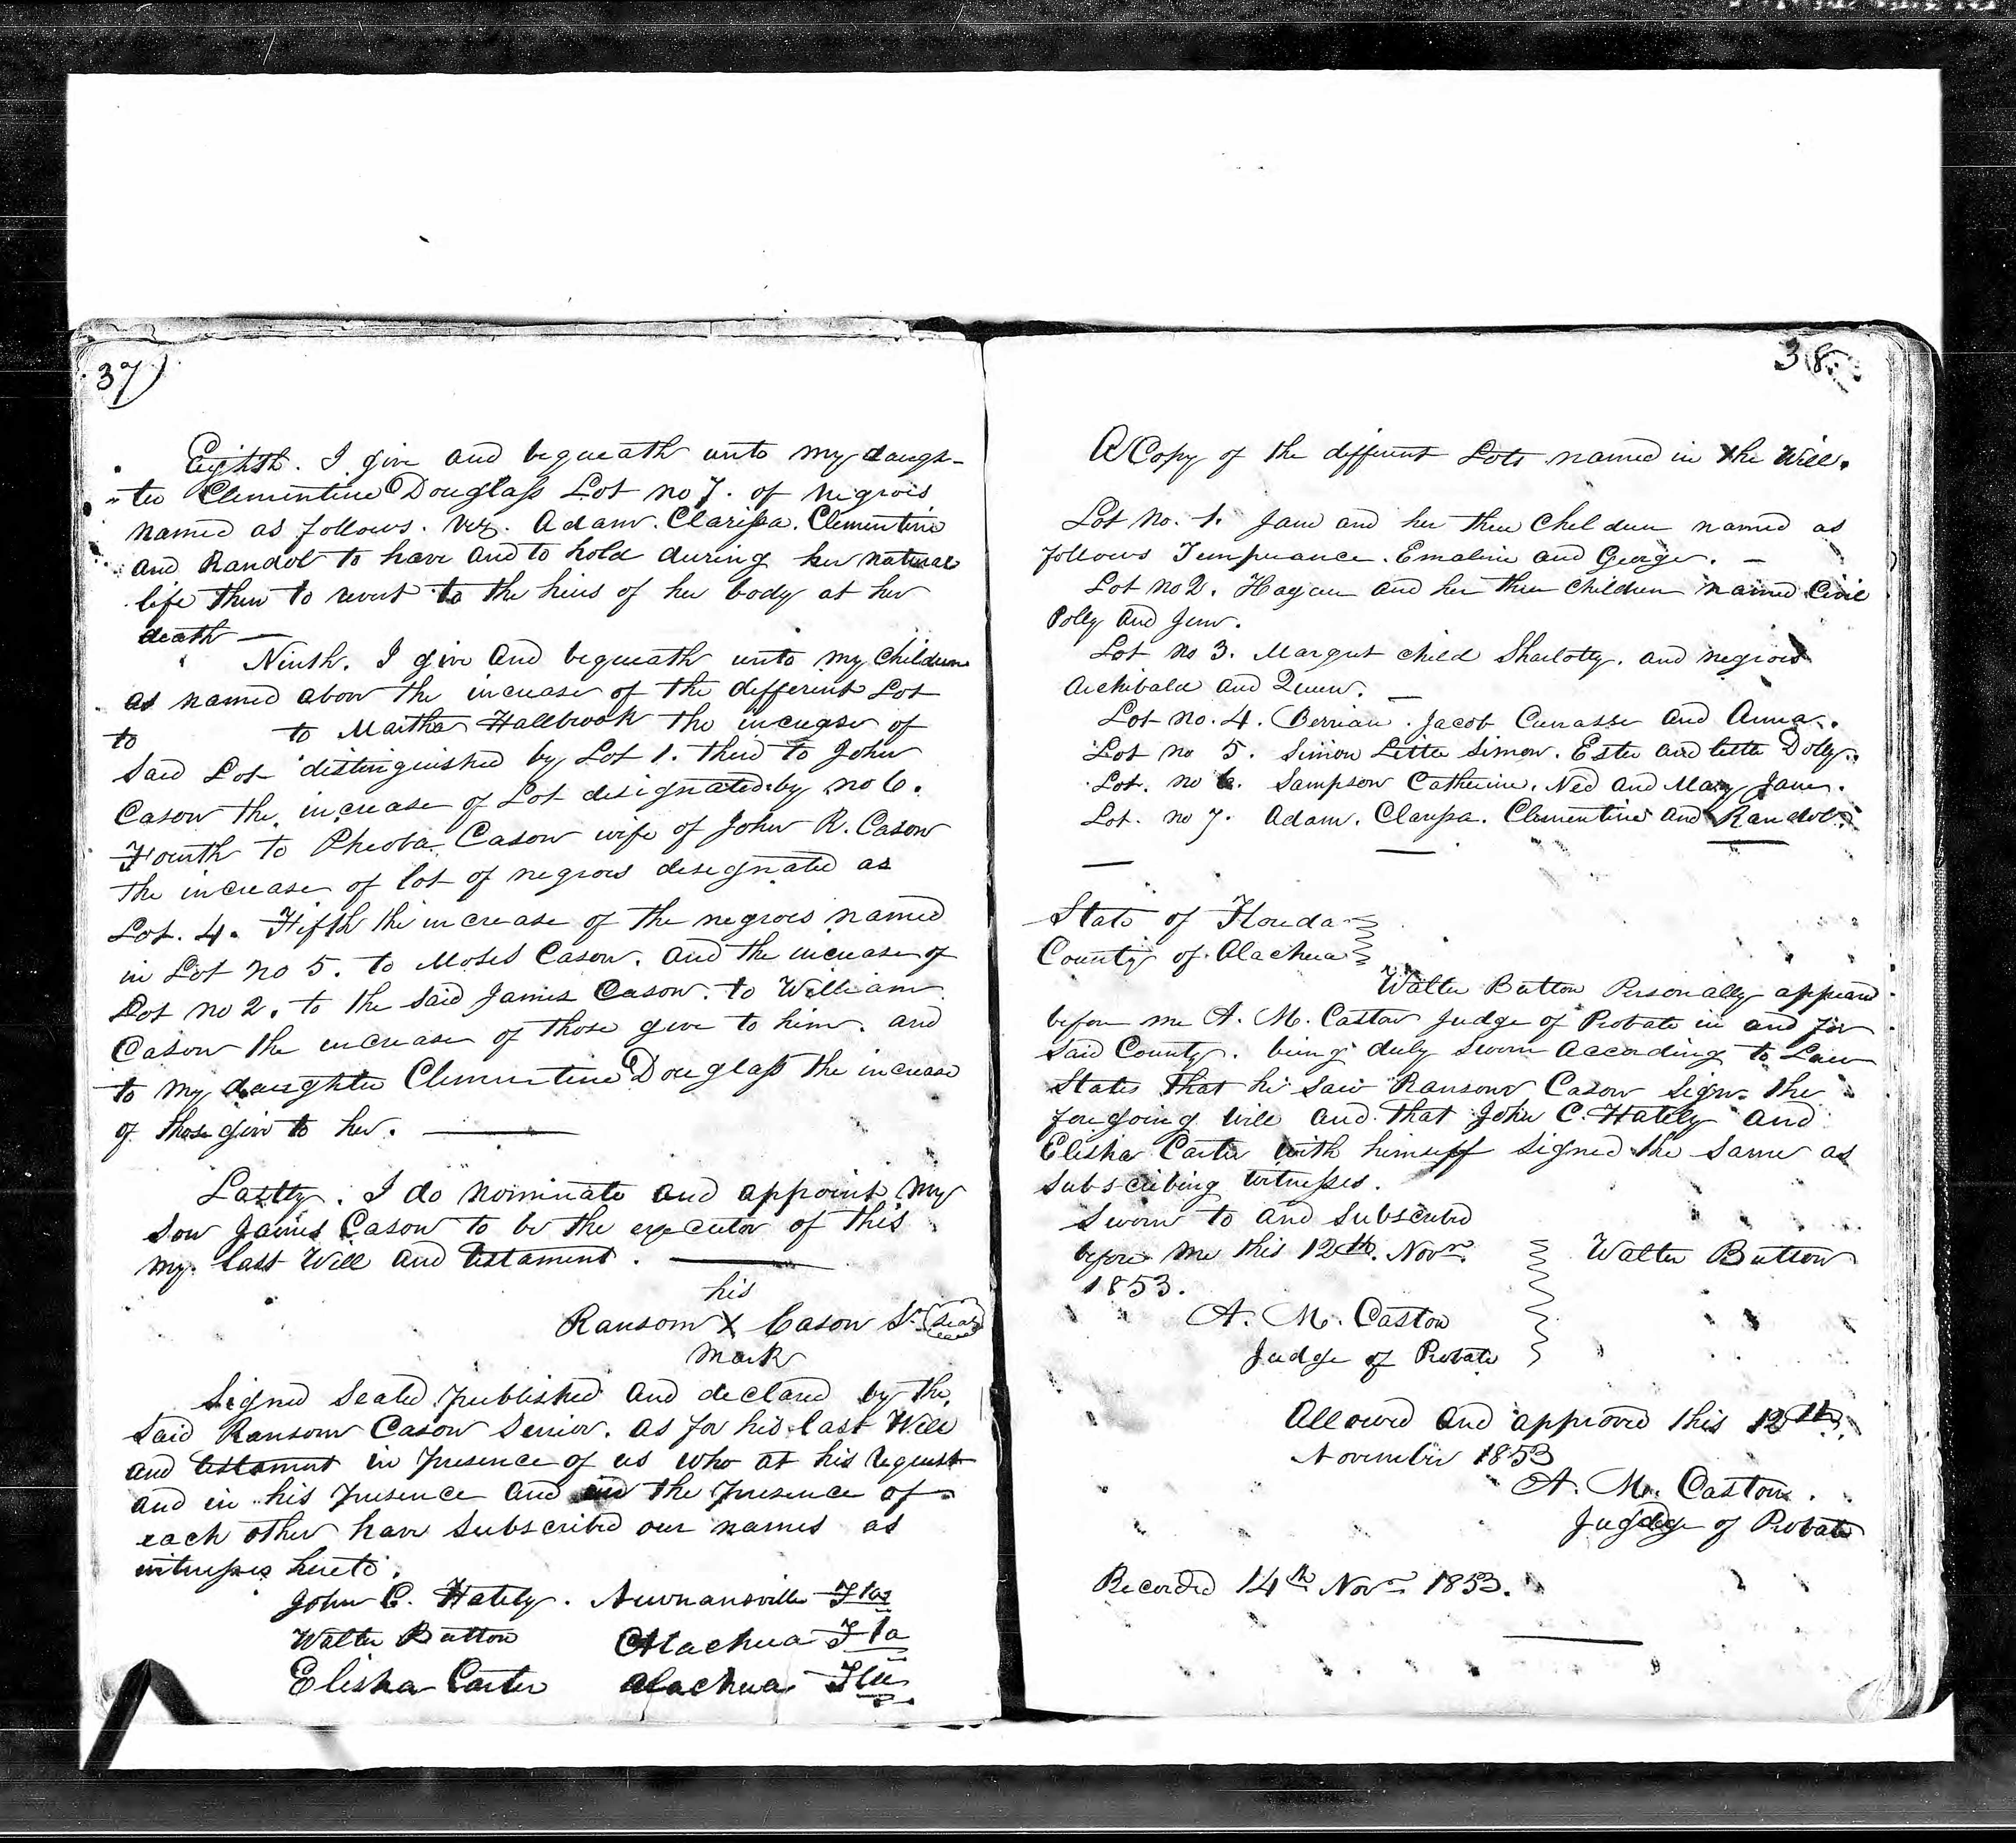 37)
Eighth. I give and bequeath unto my daugh-
-ter Clementine Douglass Lot no 7. of negroes
named as follows. viz. Adam. Clarissa. Clementine
and Randol to have and to hold during her natural
life then to revert to the heirs of her body at her
death —
Ninth. I give and bequeath unto my children
as named above the increase of the different Lot
to to Martha Hallbrook the increase of
Said Lot distinguished by Lot 1. third to John
Cason the increase of Lot designated by no 6.
Fourth to Pheoba Cason wife of John R. Cason
the increase of lot of negroes designated as
Lot. 4. Fifth the increase of the negroes named
in Lot no 5. to Moses Cason. and the increase of
Lot no 2. to the Said James Cason. to William
Cason the increase of those give to him. and
to my daughter Clementine Douglass the increase
of those give to her. —
Lastly. I do nominate and appoint my
son James Cason to be the executor of this
my last Will and testament. —
his
Ransom X Cason Sr (Seal)
mark
Signed Sealed published and declared by the
said Ransom Cason Senior. as for his last Will
and testament in presence of us who at his request
and in his presence and in the presence of
each other have subscribed our names as
witnesses hereto.
John C. Hately. Newnansville Fla
Walter Button Alachua Fla
Elisha Carter Alachua Fla
38
A Copy of the different Lots named in the Will.
Lot No. 1. Jane and her three children named as
follows Tempurance. Emaline and George. —
Lot no 2. Hagan and her three children named Civil
Polly and Jim.
Lot no 3. Margret child Sharlotty. and negroes
Archibald and Queen. —
Lot no. 4. Berrian. Jacob Currassee and Anna.
Lot no 5. Simon Little Simon. Ester and little Dolly.
Lot. no 6. Sampson Catherine. Ned and Mary Jane.
Lot. no 7. Adam. Clarissa. Clementine and Randol.
State of Florida
County of Alachua
Walter Button Personally appeared
before me A. M. Caston Judge of Probate in and for
said County. being duly sworn According to Law
States that he saw Ransom Cason sign the
foregoing will and that John C. Hately and
Elisha Carter with himself signed the same as
subscribing witnesses.
Sworn to and subscribed
before me this 12th. Novr.
1853.
Walter Button
A. M. Caston
Judge of Probate
Allowed and approved this 12th.
November 1853
A. M. Caston.
Jugdge of Probate
Recorded 14th Novr 1853.